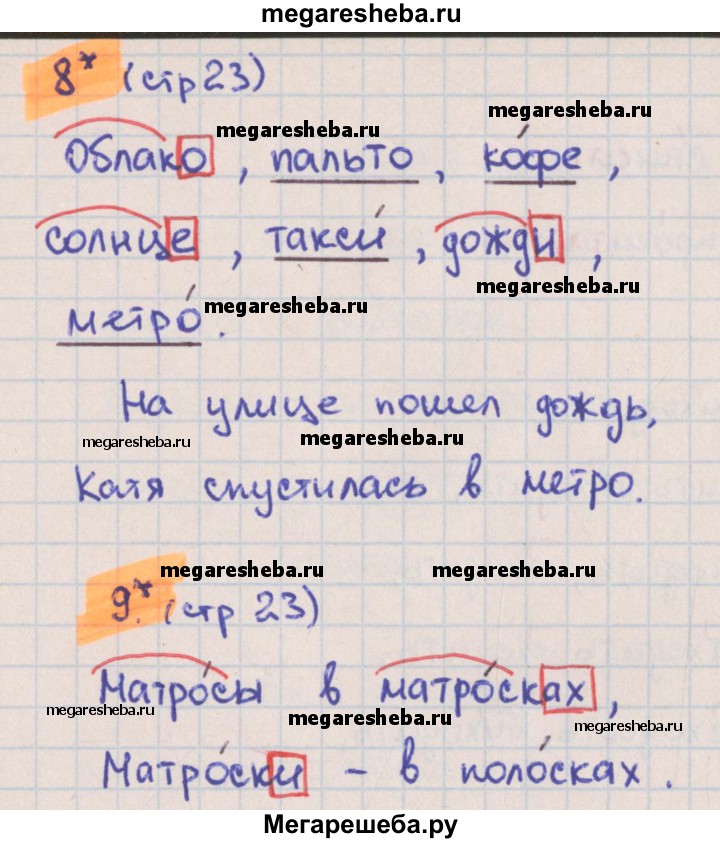 megaresheba.ru
8* (стр 23)
megaresheba.ru
megaresheba.ru
Облако, пальто, ко́фе,
солнце, такси́, дожди,
megaresheba.ru
megaresheba.ru
метро́.
На улице пошел дождь,
megaresheba.ru
megaresheba.ru
Катя спустилась в метро.
megaresheba.ru
megaresheba.ru
9.* (стр 23)
Матро́сы в матро́сках,
megaresheba.ru
megaresheba.ru
megaresheba.ru
Матро́ски – в поло́сках.
Мегарешеба.ру